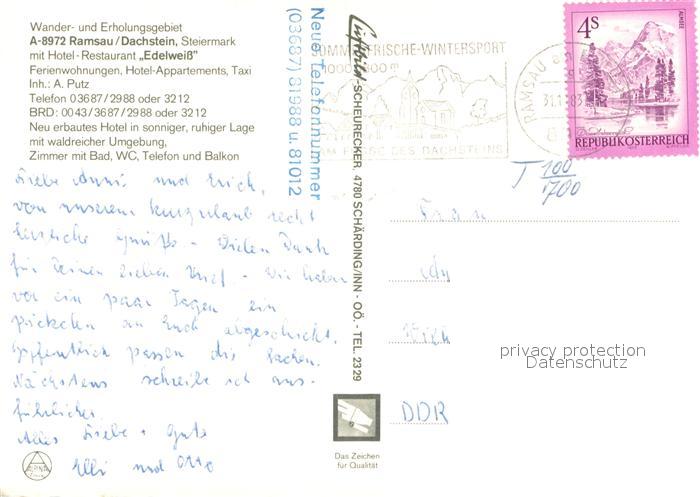 Wander- und Erholungsgebiet
A-8972 Ramsau/Dachstein, Steiermark
mit Hotel-Restaurant „Edelweiß"
Ferienwohnungen, Hotel-Appartements, Taxi
Inh.: A. Putz
Telefon 03687/2988 oder 3212
BRD: 0043/3687/2988 oder 3212
Neu erbautes Hotel in sonniger, ruhiger Lage
mit waldreicher Umgebung,
Zimmer mit Bad, WC, Telefon und Balkon
Liebe Anni und Erich,
von unserem Kurzurlaub recht
herzliche Grüße - Vielen Dank
für Deinen lieben Brief - Wir haben
vor ein paar Tagen ein
päckchen an Euch abgeschickt.
Hoffentlich passen die Sachen.
Nächstens schreibe ich aus-
führlicher.
Alles Liebe + Gute
Elli und Otto
ALPINA
Neue Telefonnummer
(03687) 81988 u. 81012
SCHEURECKER, 4780 SCHÄRDING/INN - OÖ. - TEL. 2329
Das Zeichen
für Qualität
SOMMERFRISCHE-WINTERSPORT
AM FUSSE DES DACHSTEINS
RAMSAU
4S
ALMSEE
REPUBLIK ÖSTERREICH
T 100/700
Frau
DDR
privacy protection
Datenschutz